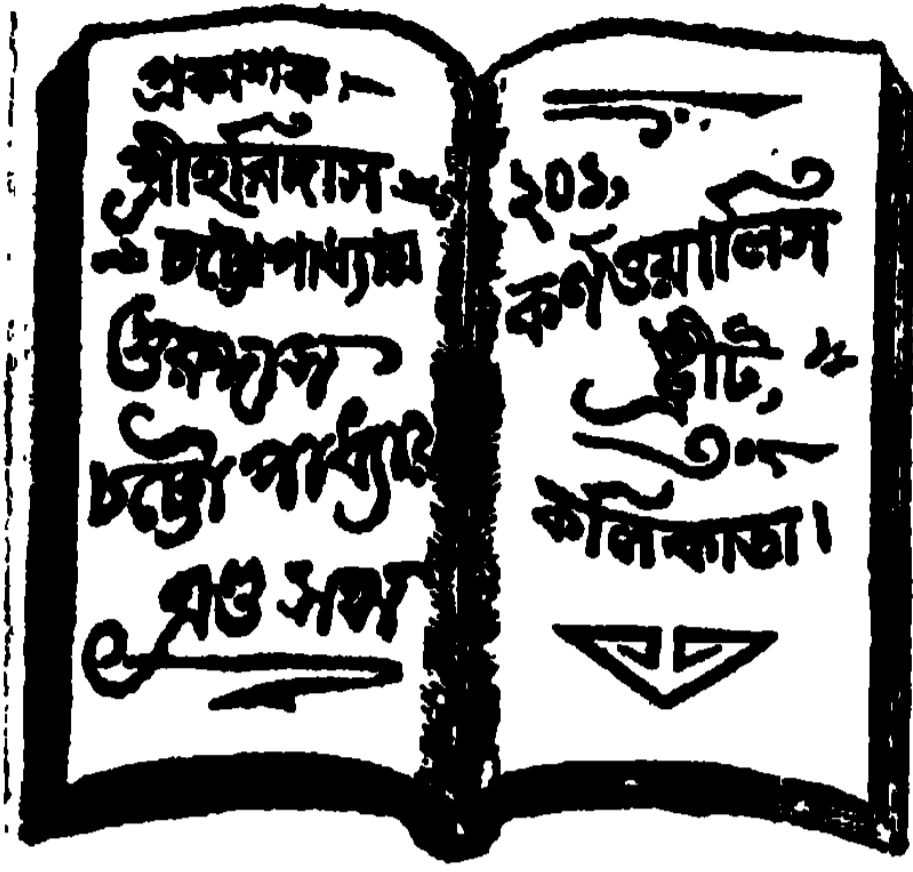 প্রকাশক,—
শ্রীহরিদাস
চট্টোপাধ্যায়
গুরুদাস
চট্টোপাধ্যায়
এণ্ড সন্স
২০১,
কর্ণওয়ালিস
ষ্ট্রীট,
কলিকাতা।